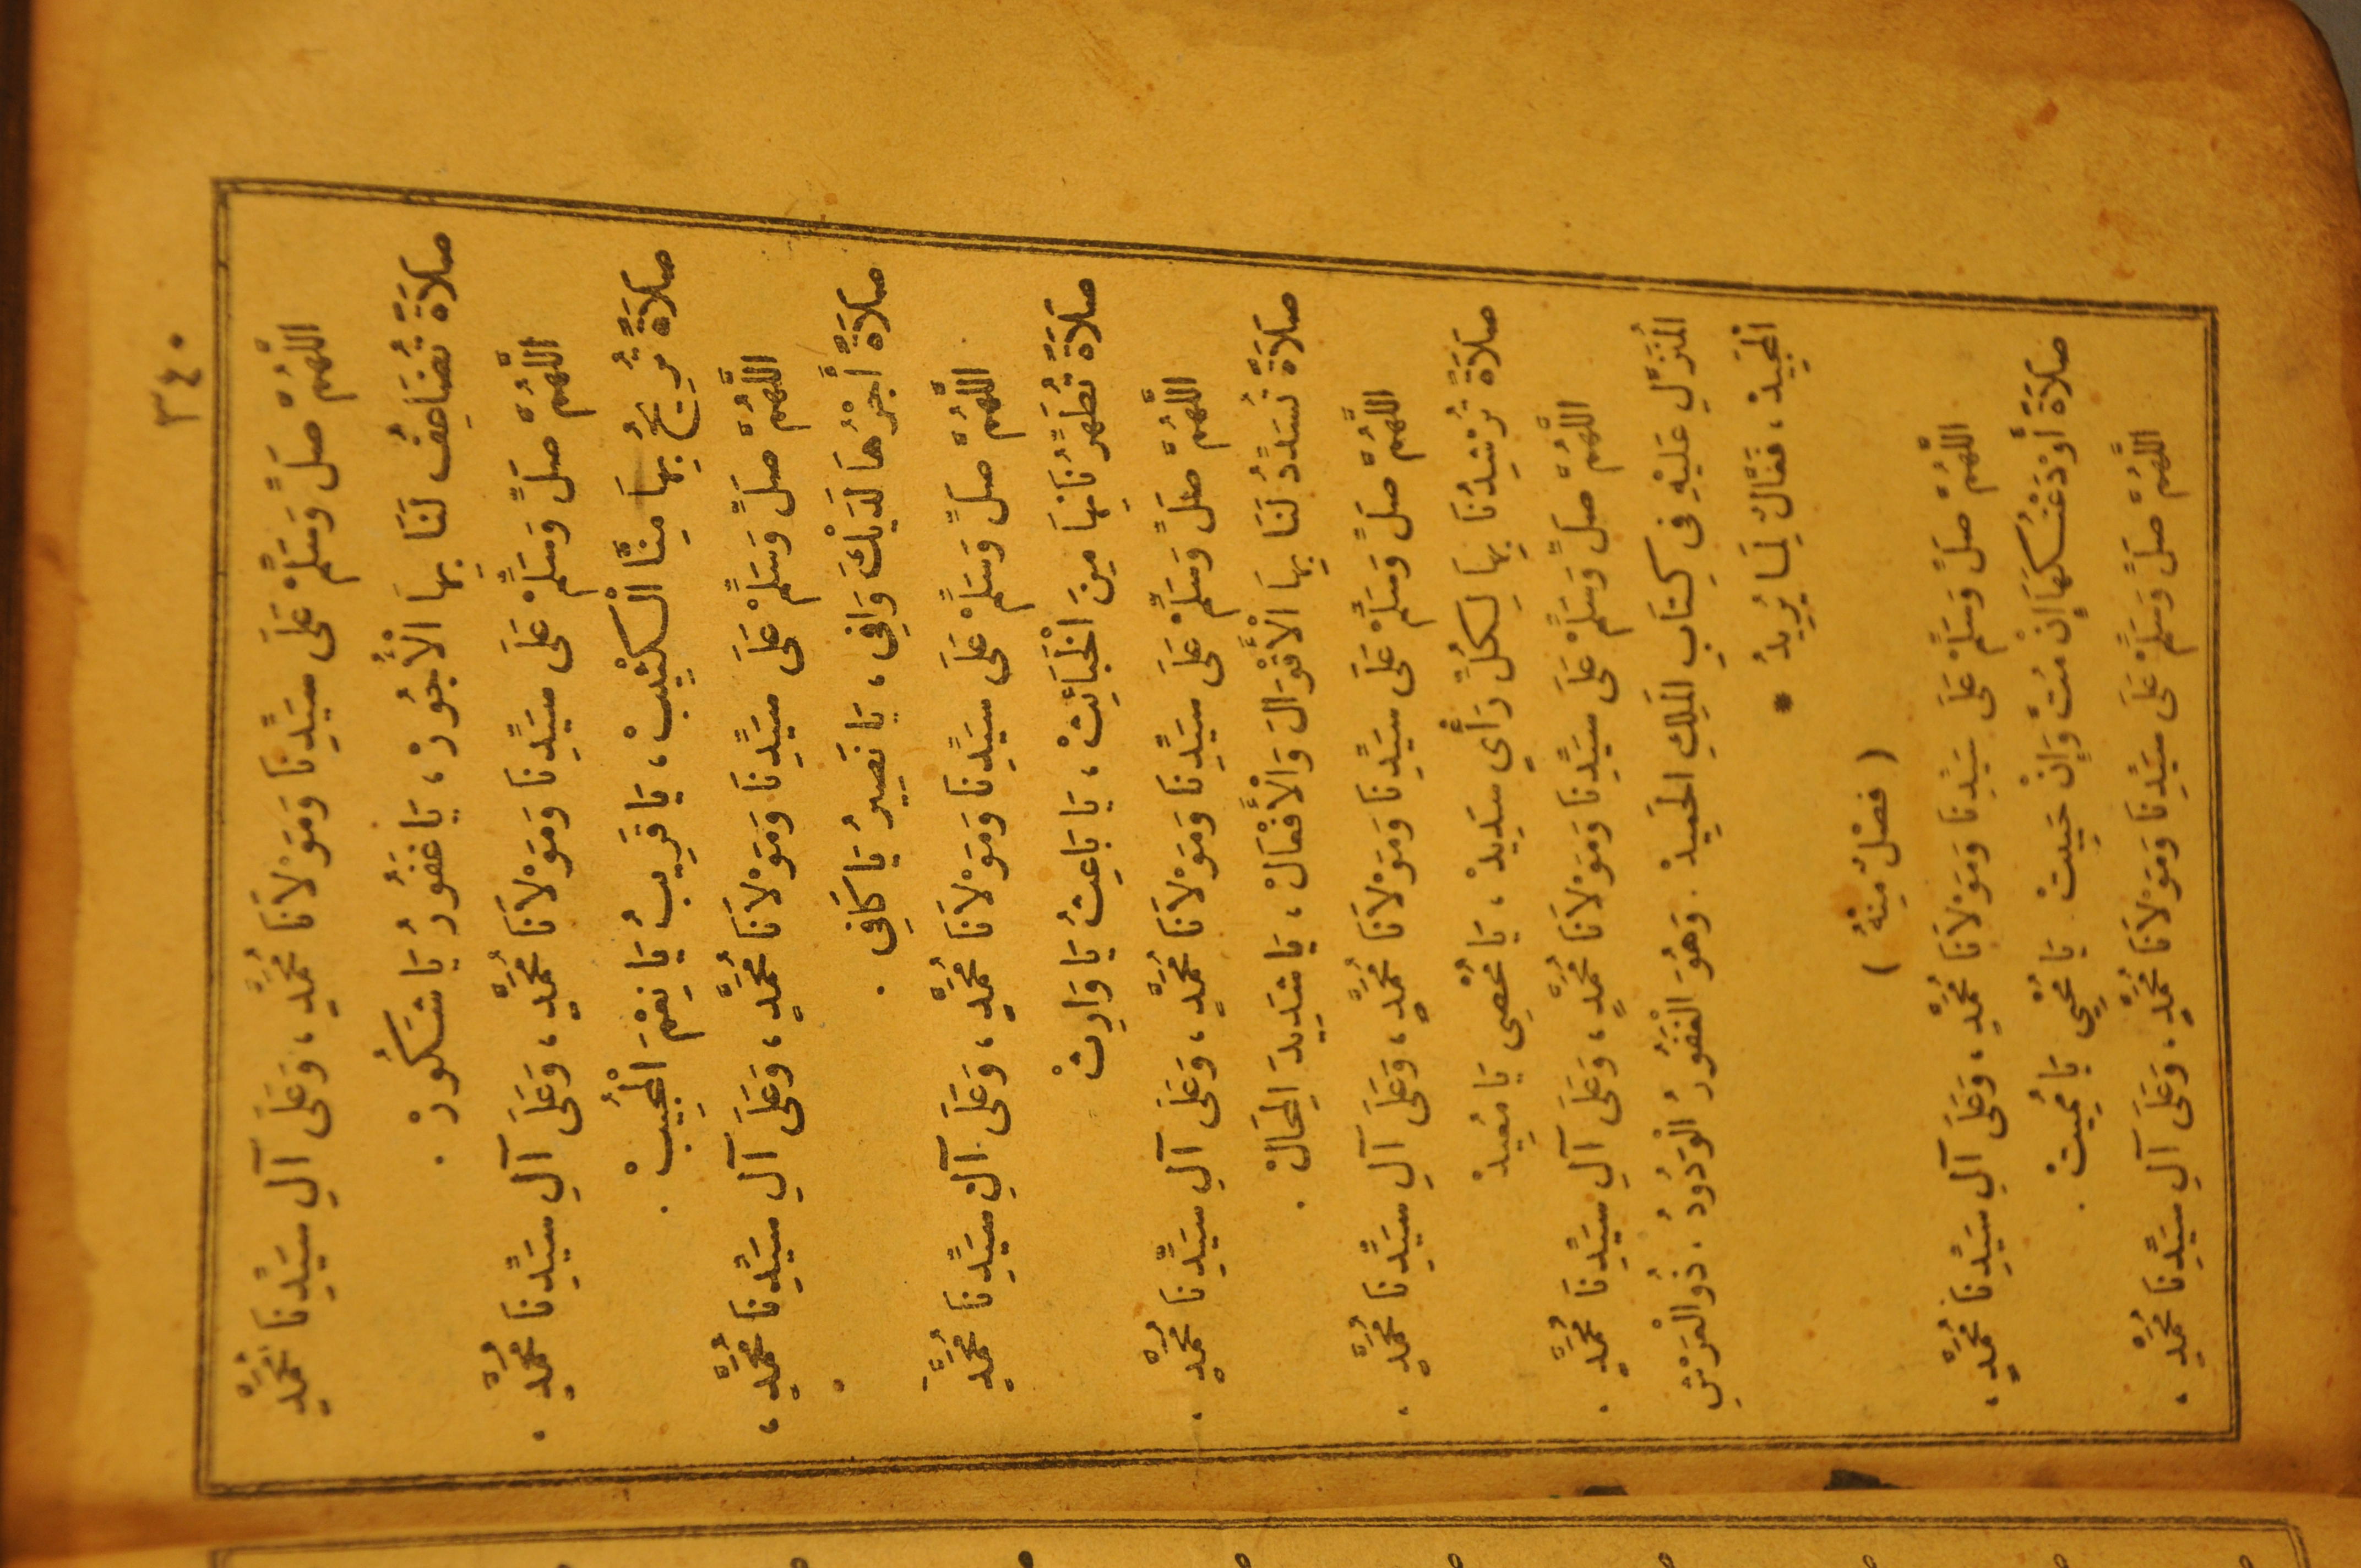 ٣٤٠
اللَّهُمَّ صَلِّ وَسَلِّمْ عَلَى سَيِّدِنَا وَمَوْلَانَا مُحَمَّدٍ، وَعَلَى آلِ سَيِّدِنَا مُحَمَّدٍ
صَلَاةً تُضَاعِفُ لَنَا بِهَا الْأُجُورْ، يَا غَفُورُ يَا شَكُورْ .
اللَّهُمَّ صَلِّ وَسَلِّمْ عَلَى سَيِّدِنَا وَمَوْلَانَا مُحَمَّدٍ، وَعَلَى آلِ سَيِّدِنَا مُحَمَّدٍ .
صَلَاةً تُرِيحُ بِهَا مِنَّا الْكَئِيبْ، يَا قَرِيبُ يَا نِعْمَ الْمُجِيبْ .
اللَّهُمَّ صَلِّ وَسَلِّمْ عَلَى سَيِّدِنَا وَمَوْلَانَا مُحَمَّدٍ، وَعَلَى آلِ سَيِّدِنَا مُحَمَّدٍ،
صَلَاةً أَجْرُهَا لَدَيْكَ وَافِى، يَا نَصِيرُ يَا كَافِى .
اللَّهُمَّ صَلِّ وَسَلِّمْ عَلَى سَيِّدِنَا وَمَوْلَانَا مُحَمَّدٍ، وَعَلَى آلِ سَيِّدِنَا مُحَمَّدٍ
صَلَاةً تُطَهِّرُنَا بِهَا مِنَ الْخَبَائِثْ، يَا بَاعِثُ يَا وَارِثْ
اللَّهُمَّ صَلِّ وَسَلِّمْ عَلَى سَيِّدِنَا وَمَوْلَانَا مُحَمَّدٍ، وَعَلَى آلِ سَيِّدِنَا مُحَمَّدٍ .
صَلَاةً تُسَدِّدُ لَنَا بِهَا الْأَقْوَالَ وَالْأَفْعَالْ، يَا شَدِيدَ الْمِحَالْ .
اللَّهُمَّ صَلِّ وَسَلِّمْ عَلَى سَيِّدِنَا وَمَوْلَانَا مُحَمَّدٍ، وَعَلَى آلِ سَيِّدِنَا مُحَمَّدٍ .
صَلَاةً تُرْشِدُنَا بِهَا لِكُلِّ رَأْيٍ سَدِيدْ، يَا مُحْصِى يَا مُعِيدْ
اللَّهُمَّ صَلِّ وَسَلِّمْ عَلَى سَيِّدِنَا وَمَوْلَانَا مُحَمَّدٍ، وَعَلَى آلِ سَيِّدِنَا مُحَمَّدٍ .
الْمُنَزَّلِ عَلَيْهِ فِى كِتَابِ الْمَلِكِ الْحَمِيدْ . وَهُوَ الْغَفُورُ الْوَدُودُ . ذُو الْعَرْشِ
الْمَجِيدْ، فَعَّالٌ لِمَا يُرِيدُ *
( فَصْلٌ مِنْهُ )
اللَّهُمَّ صَلِّ وَسَلِّمْ عَلَى سَيِّدِنَا وَمَوْلَانَا مُحَمَّدٍ، وَعَلَى آلِ سَيِّدِنَا مُحَمَّدٍ،
صَلَاةً أَوْدَعْتُكَهَا إِنْ مُتْ وَإِنْ حَيِيتْ . يَا مُحْيِى يَا مُمِيتْ .
اللَّهُمَّ صَلِّ وَسَلِّمْ عَلَى سَيِّدِنَا وَمَوْلَانَا مُحَمَّدٍ، وَعَلَى آلِ سَيِّدِنَا مُحَمَّدٍ،